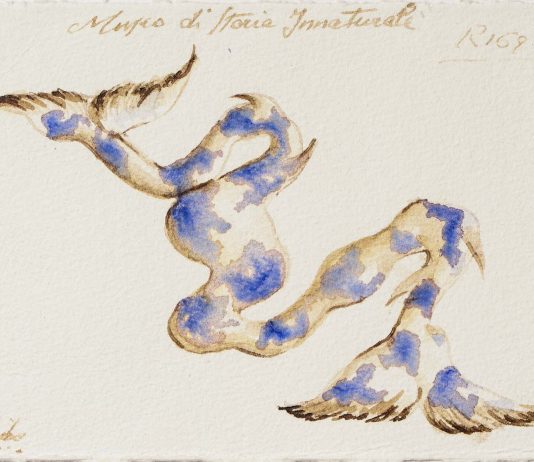 Museo di Storia Innaturale
R169